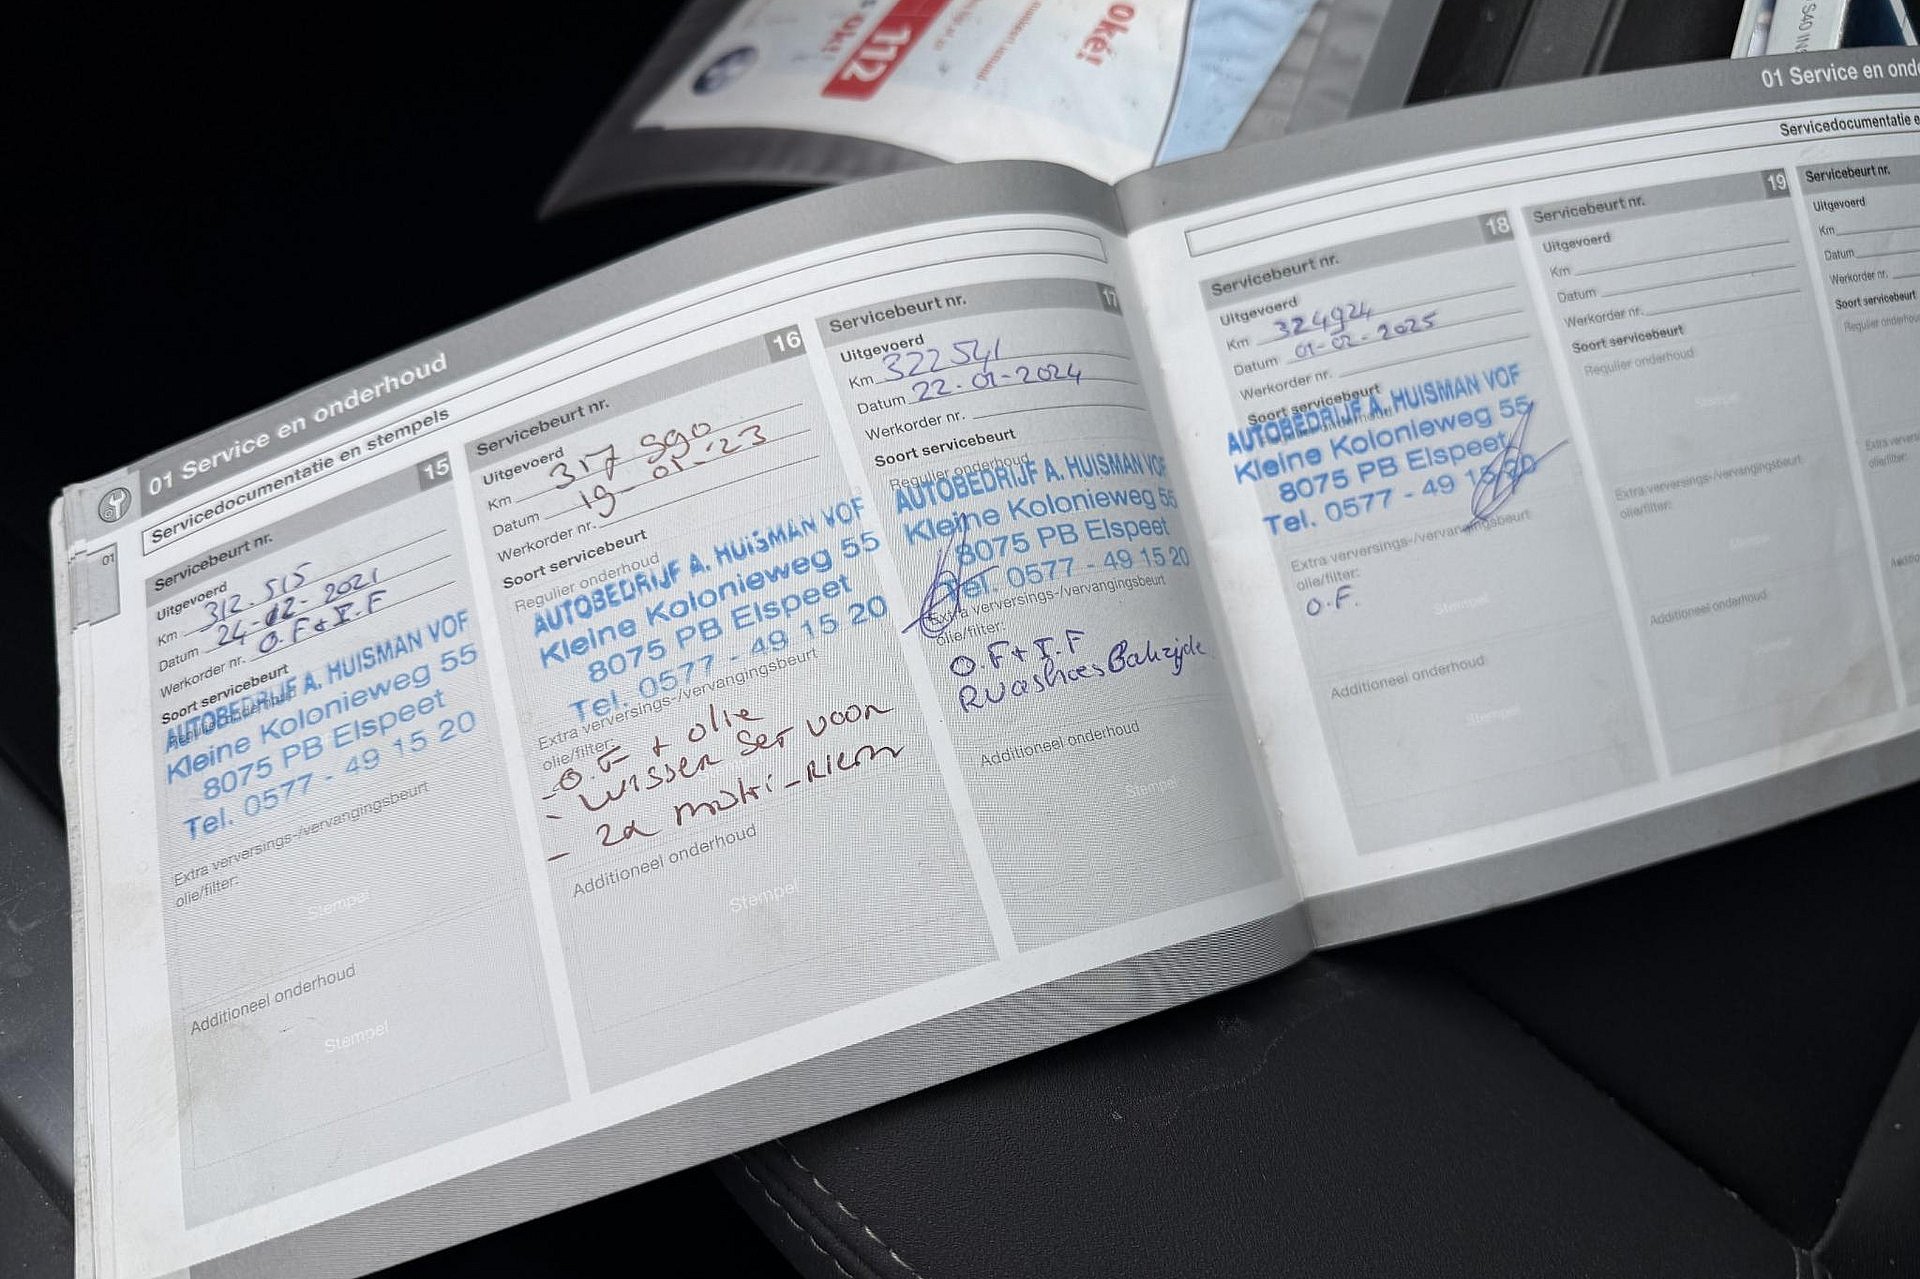 oké!
112
S40 IN
01 Service en onderhoud
Servicedocumentatie en stempels
01
Servicebeurt nr. 15
Uitgevoerd
Km 312.515
Datum 24-12-2021
Werkorder nr. O.F + I.F
Soort servicebeurt
AUTOBEDRIJF A. HUISMAN VOF
Kleine Kolonieweg 55
8075 PB Elspeet
Tel. 0577 - 49 15 20
Extra verversings-/vervangingsbeurt
olie/filter:
Stempel
Additioneel onderhoud
Stempel
Servicebeurt nr. 16
Uitgevoerd
Km 317 990
Datum 19-01-'23
Werkorder nr.
Soort servicebeurt
Regulier onderhoud
AUTOBEDRIJF A. HUISMAN VOF
Kleine Kolonieweg 55
8075 PB Elspeet
Tel. 0577 - 49 15 20
Extra verversings-/vervangingsbeurt
olie/filter:
- O.F + olie
- wisser set voor
- 2x multi-riem
Additioneel onderhoud
Stempel
Servicebeurt nr. 17
Uitgevoerd
Km 322541
Datum 22-01-2024
Werkorder nr.
Soort servicebeurt
Regulier onderhoud
AUTOBEDRIJF A. HUISMAN VOF
Kleine Kolonieweg 55
8075 PB Elspeet
Tel. 0577 - 49 15 20
Extra verversings-/vervangingsbeurt
olie/filter:
O.F + I.F
Additioneel onderhoud
Stempel
01 Service en onde
Servicedocumentatie e
Servicebeurt nr. 18
Uitgevoerd
Km 324924
Datum 01-02-2025
Werkorder nr.
Soort servicebeurt
AUTOBEDRIJF A. HUISMAN VOF
Kleine Kolonieweg 55
8075 PB Elspeet
Tel. 0577 - 49 15 20
Extra verversings-/vervangingsbeurt
olie/filter:
O.F.
Stempel
Additioneel onderhoud
Stempel
Servicebeurt nr. 19
Uitgevoerd
Km
Datum
Werkorder nr.
Soort servicebeurt
Regulier onderhoud
Stempel
Extra verversings-/vervangingsbeurt
olie/filter:
Stempel
Additioneel onderhoud
Servicebeurt nr.
Uitgevoerd
Km
Datum
Werkorder nr.
Soort servicebeurt
Regulier onderhou
Extra ververs
olie/filter: